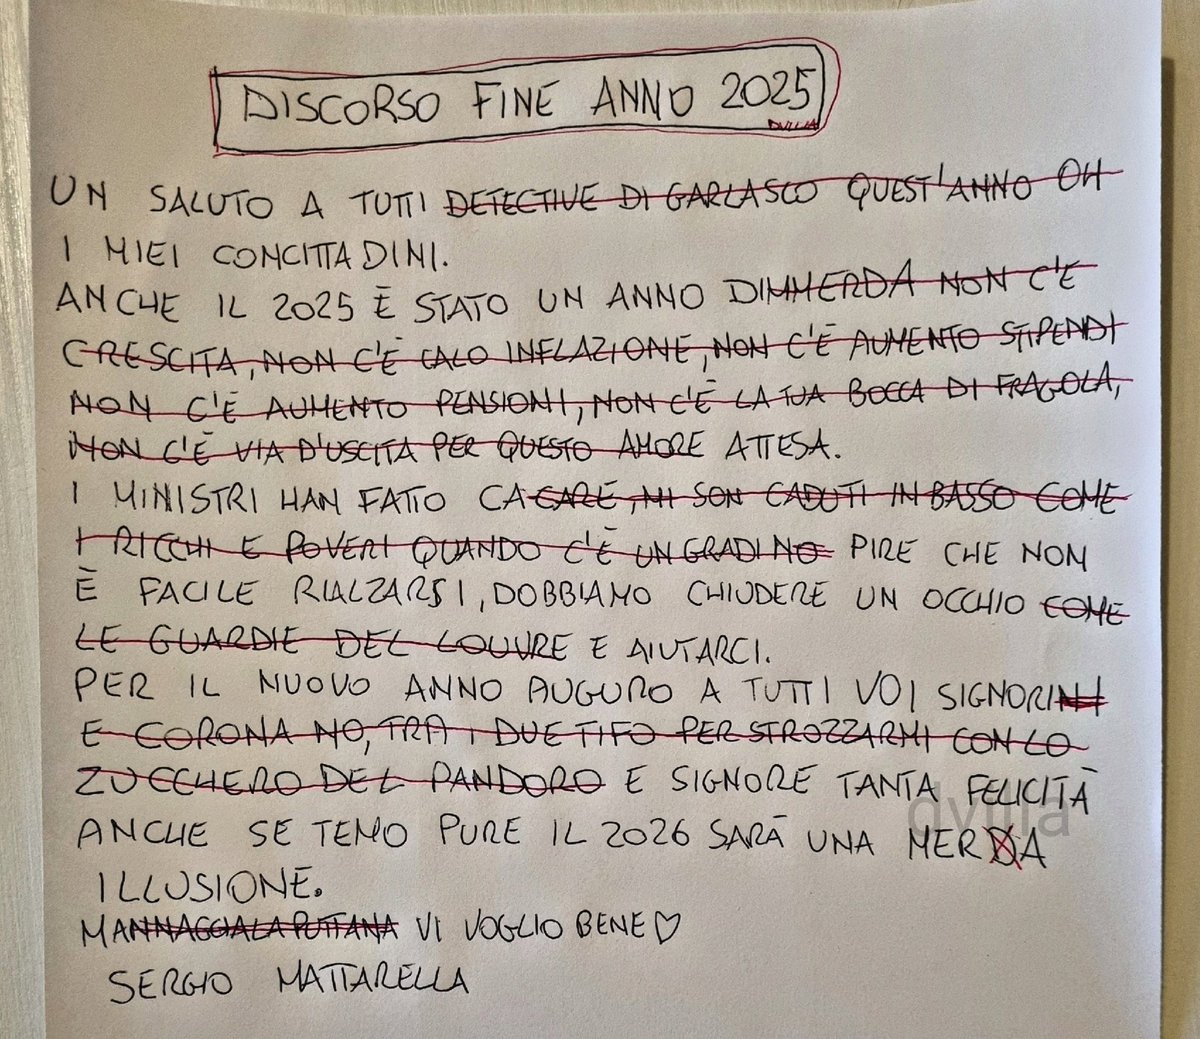 DISCORSO FINE ANNO 2025
DVILLA
UN SALUTO A TUTTI DETECTIVE DI GARLASCO QUEST'ANNO OH
I MIEI CONCITTADINI.
ANCHE IL 2025 È STATO UN ANNO DIMMERDA NON C'È
CRESCITA, NON C'È CALO INFLAZIONE, NON C'È AUMENTO STIPENDI
NON C'È AUMENTO PENSIONI, NON C'È LA TUA BOCCA DI FRAGOLA,
NON C'È VIA D'USCITA PER QUESTO AMORE ATTESA.
I MINISTRI HAN FATTO CACARE, MI SON CADUTI IN BASSO COME
I RICCHI E POVERI QUANDO C'È UN GRADINO PIRE CHE NON
È FACILE RIALZARSI, DOBBIAMO CHIUDERE UN OCCHIO COME
LE GUARDIE DEL LOUVRE E AIUTARCI.
PER IL NUOVO ANNO AUGURO A TUTTI VOI SIGNORINI
E CORONA NO, TRA I DUE TIFO PER STROZZARMI CON LO
ZUCCHERO DEL PANDORO E SIGNORE TANTA FELICITÀ
dvilla
ANCHE SE TEMO PURE IL 2026 SARÀ UNA MERDA
ILLUSIONE.
MANNAGGIALAPUTTANA VI VOGLIO BENE♡
SERGIO MATTARELLA